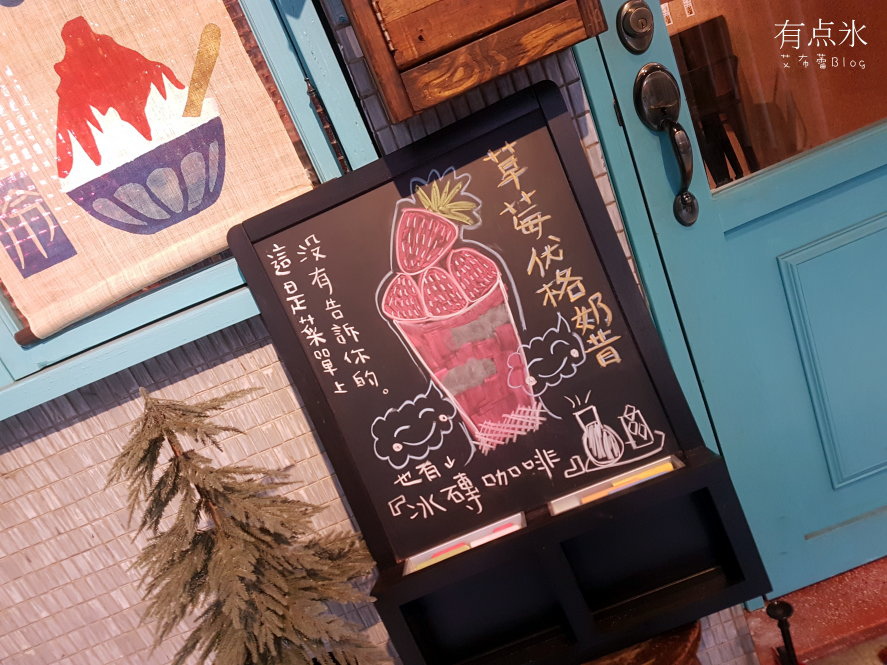 有点氷
艾布蕾Blog
草莓优格奶昔
這是菜單上
没有告訴你的。
也有↓
『冰磚咖啡